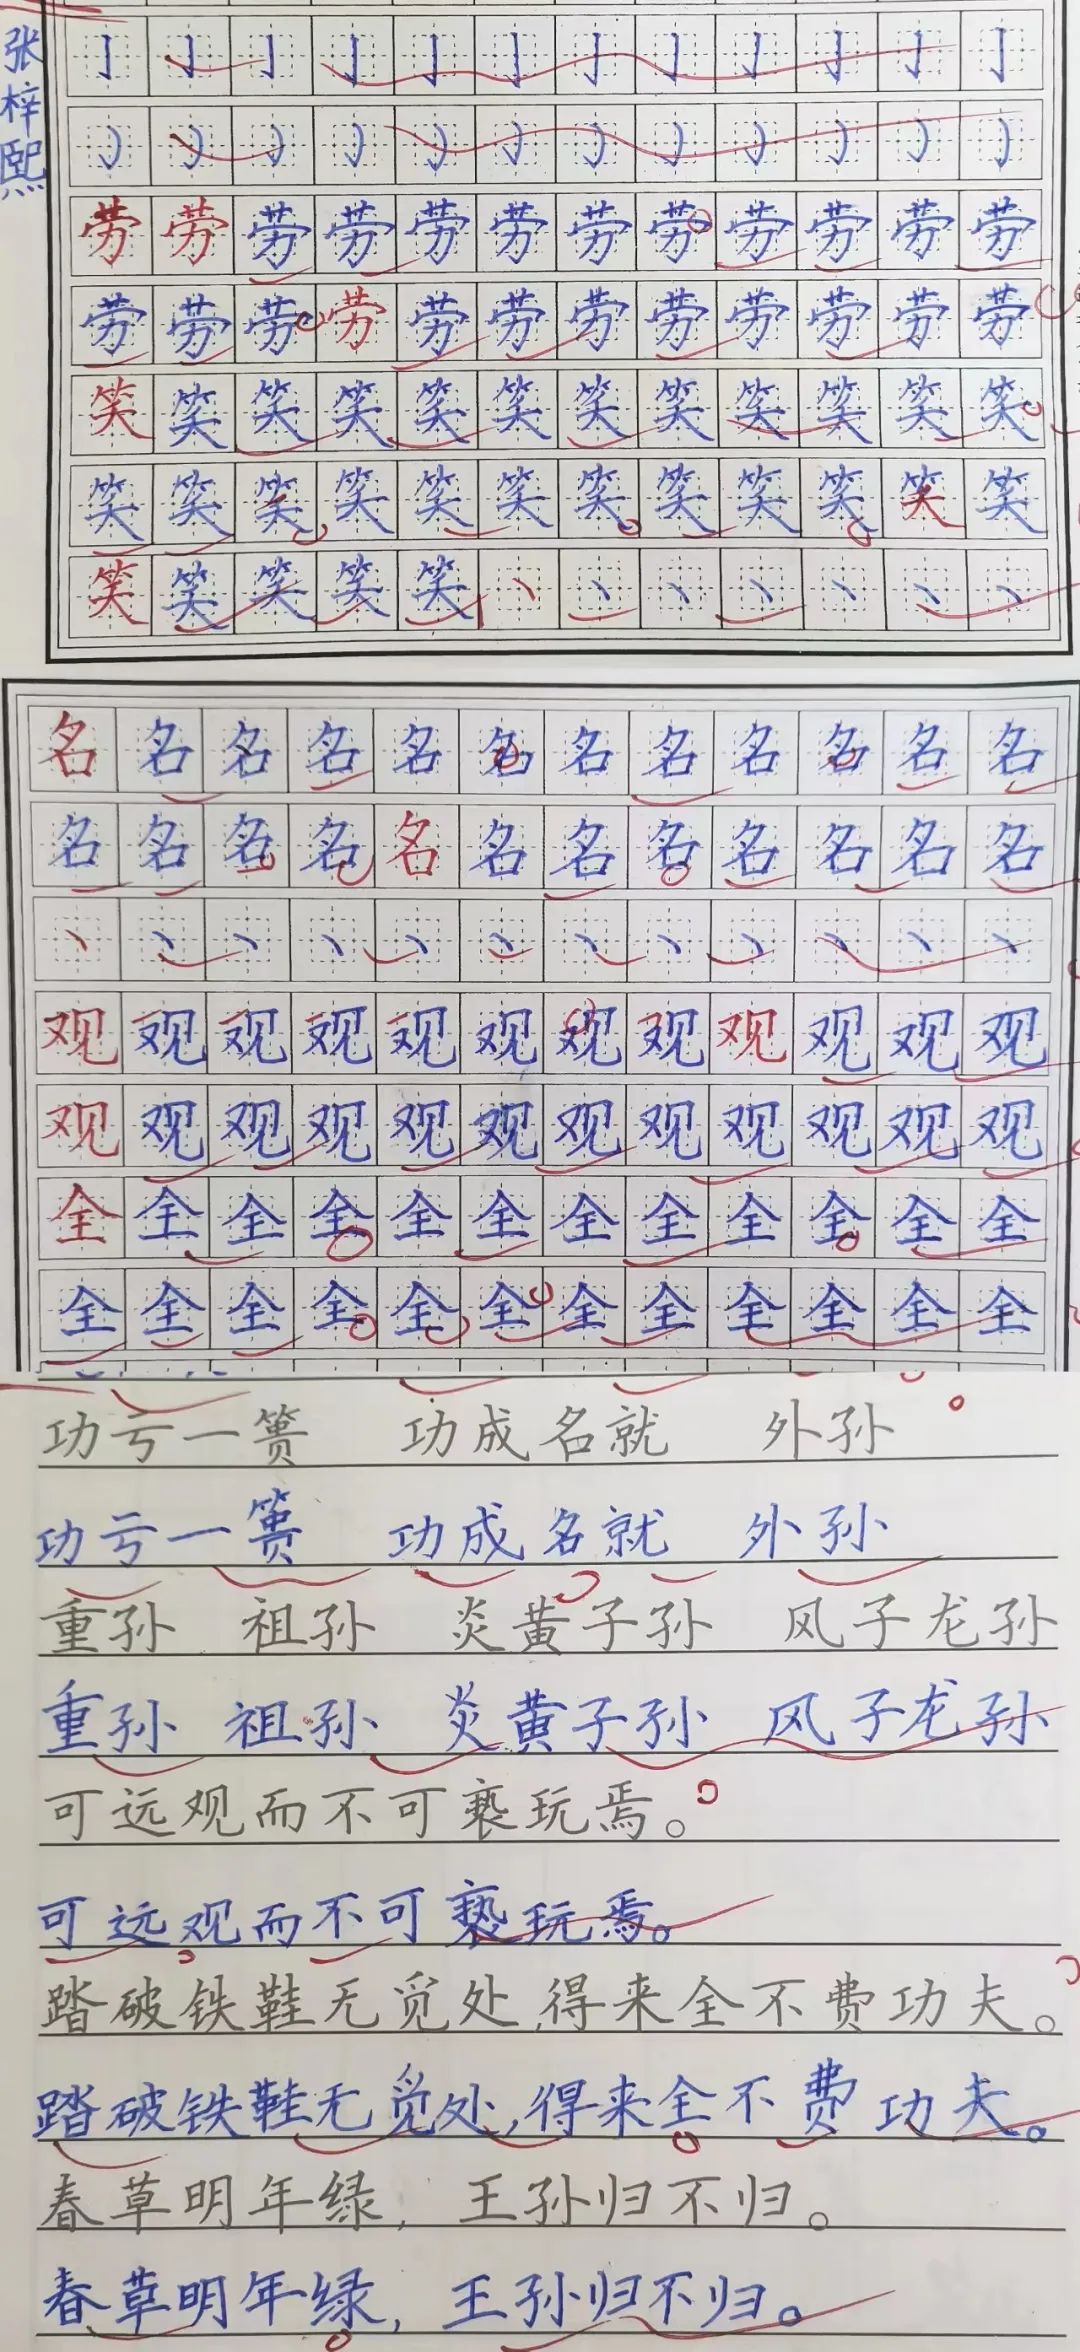 张梓熙
亅亅亅亅亅亅亅亅亅亅亅亅
劳劳劳劳劳劳劳劳劳劳劳劳
劳劳劳劳劳劳劳劳劳劳劳劳
笑笑笑笑笑笑笑笑笑笑笑笑
笑笑笑笑笑笑笑笑笑笑笑笑
笑笑笑笑笑丶丶丶丶丶丶丶
名名名名名名名名名名名名
名名名名名名名名名名名名
丶丶丶丶丶丶丶丶丶丶丶丶
观观观观观观观观观观观观
观观观观观观观观观观观观
全全全全全全全全全全全全
全全全全全全全全全全全全
功亏一篑 功成名就 外孙
功亏一篑 功成名就 外孙
重孙 祖孙 炎黄子孙 风子龙孙
重孙 祖孙 炎黄子孙 风子龙孙
可远观而不可亵玩焉。
可远观而不可亵玩焉。
踏破铁鞋无觅处,得来全不费功夫。
踏破铁鞋无觅处,得来全不费功夫。
春草明年绿,王孙归不归。
春草明年绿,王孙归不归。